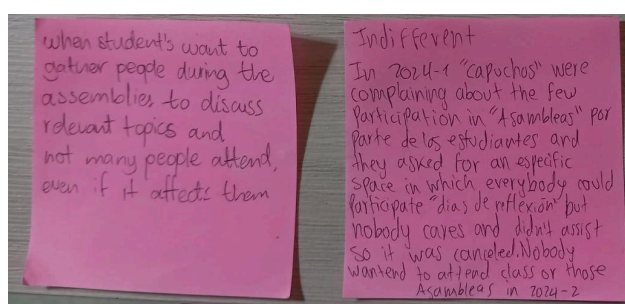 when student's want to
gather people during the
assemblies to discuss
relevant topics and
not many people attend,
even if it affects them
Indifferent
In 2024-1 "capuchos" were
complaining about the few
participation in "Asambleas" por
parte de los estudiantes and
they asked for an especific
space in which everybody could
participate "dias de reflexión" but
nobody cares and didn't assist
so it was canceled. Nobody
wantend to attend class or those
Asambleas in 2024-2